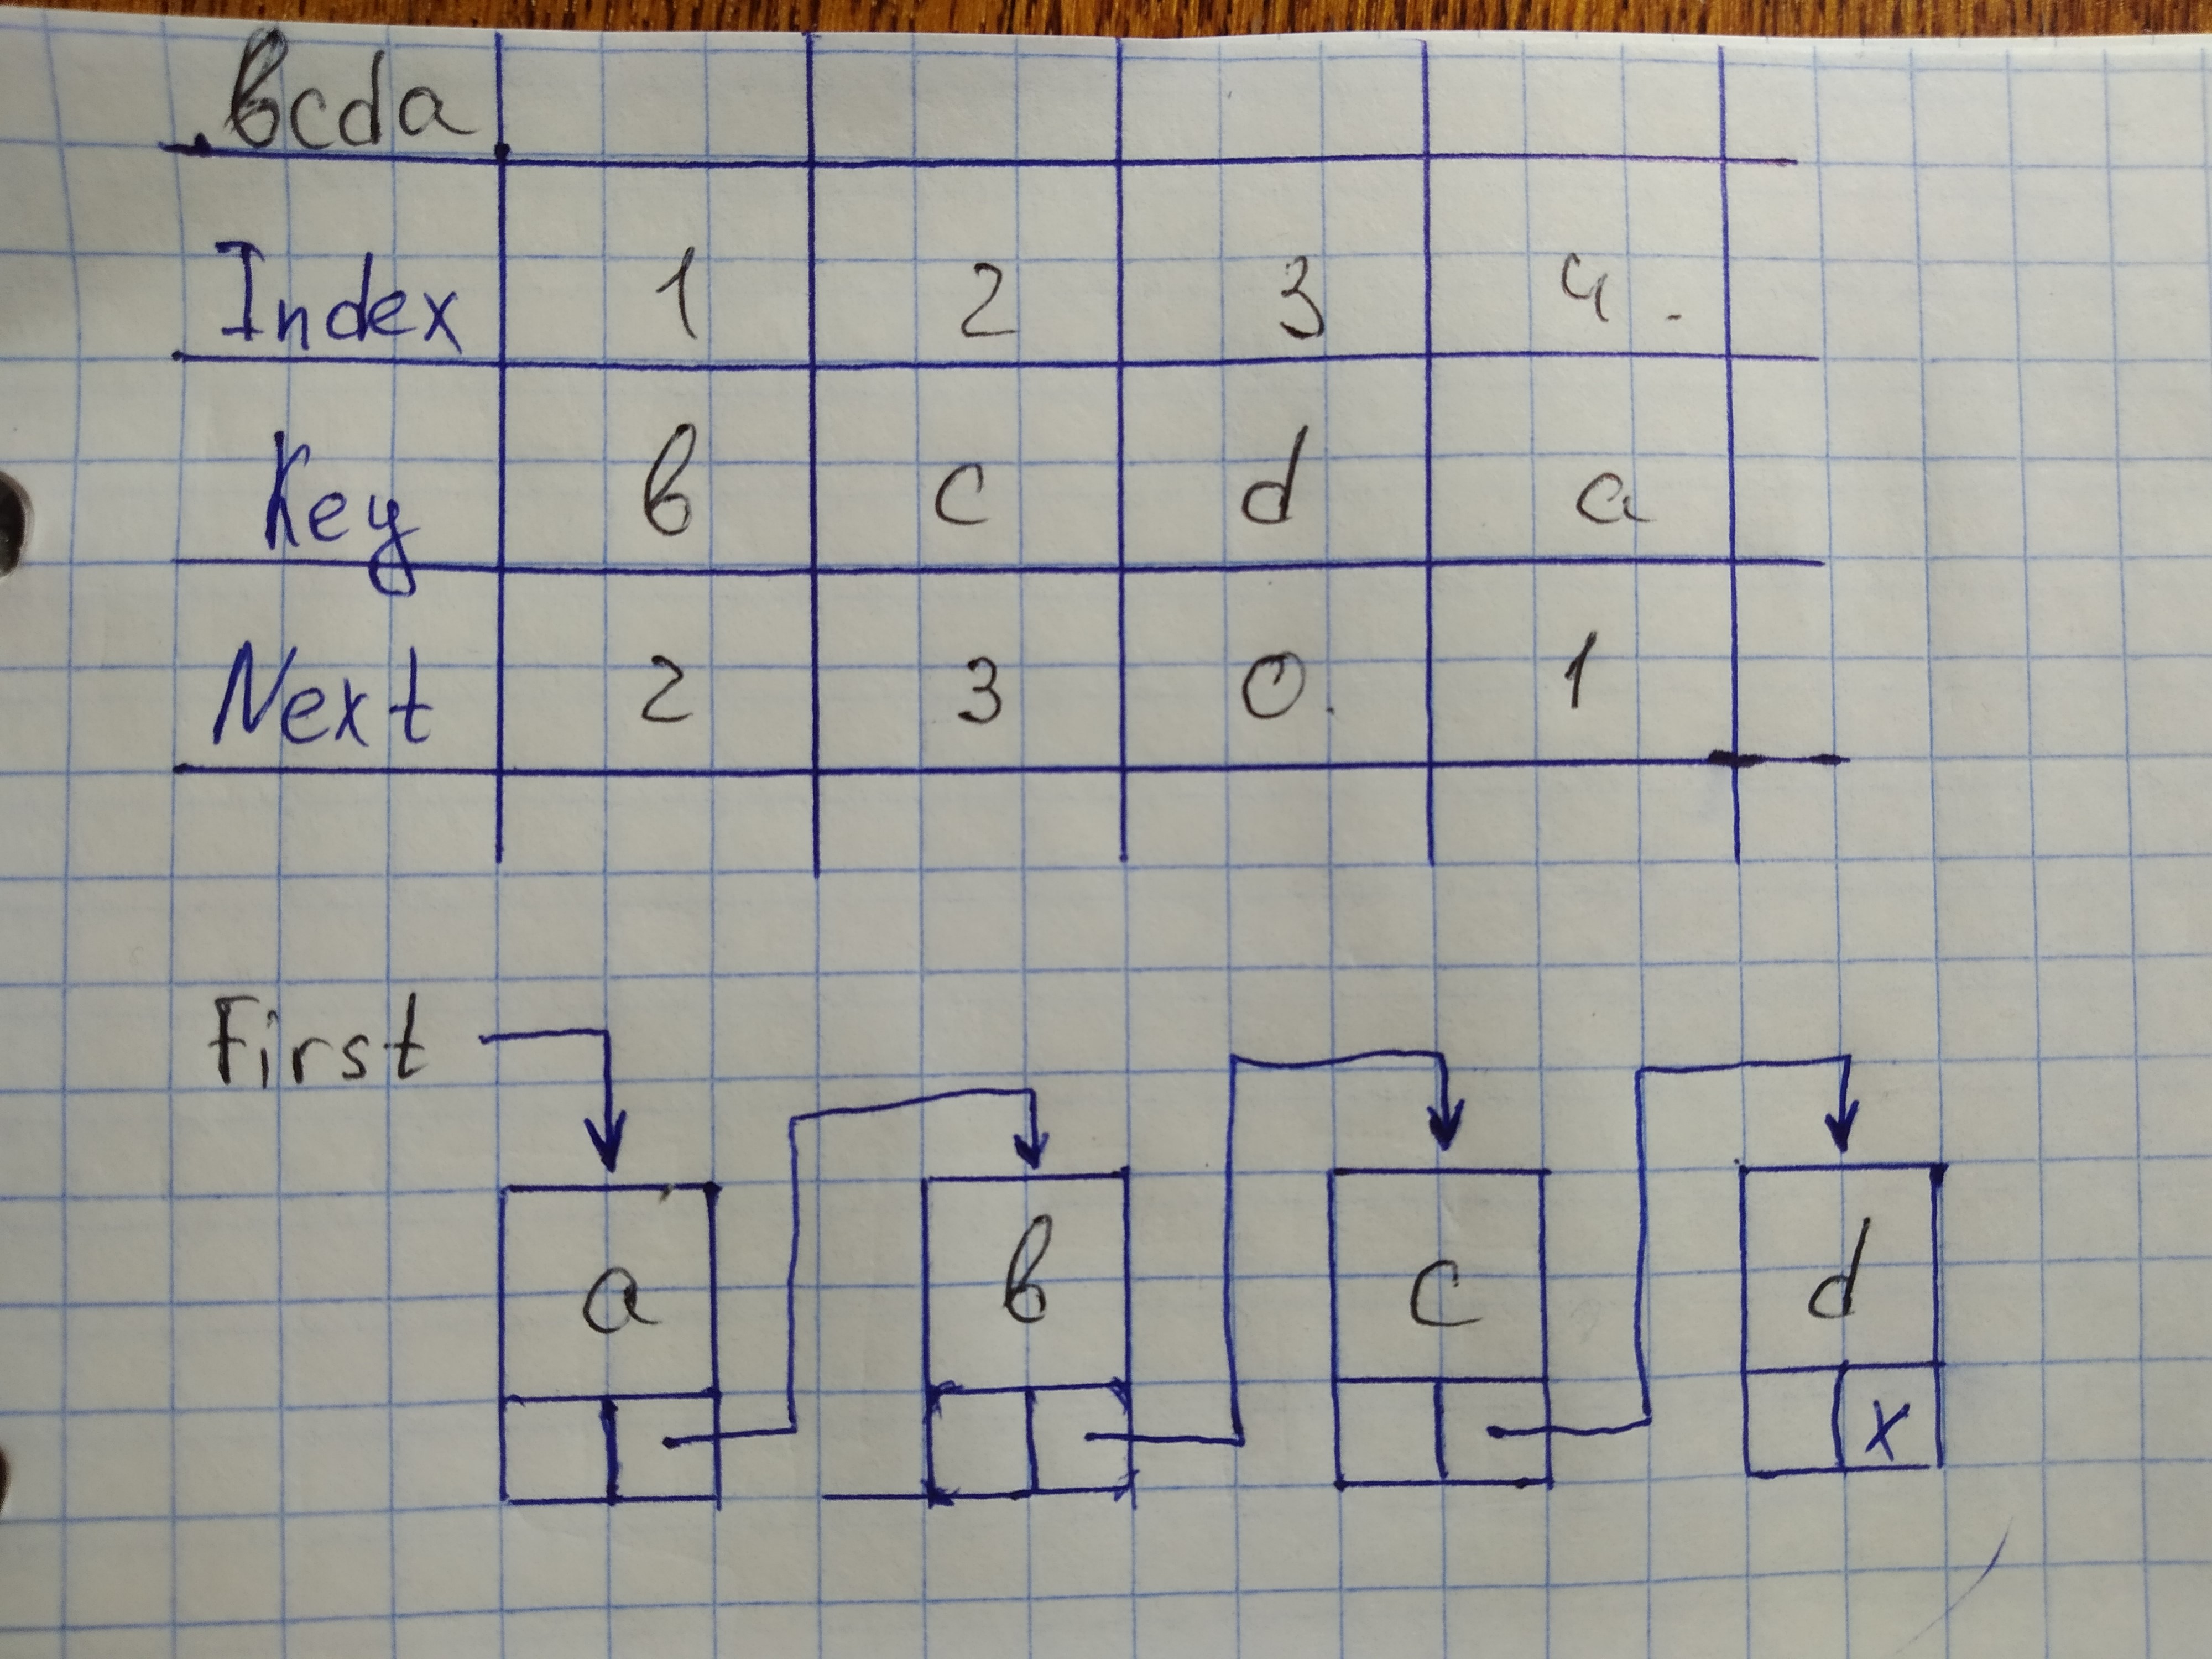 bcda
Index 1 2 3 4
Key b c d a
Next 2 3 0 1
First
a b c d
x